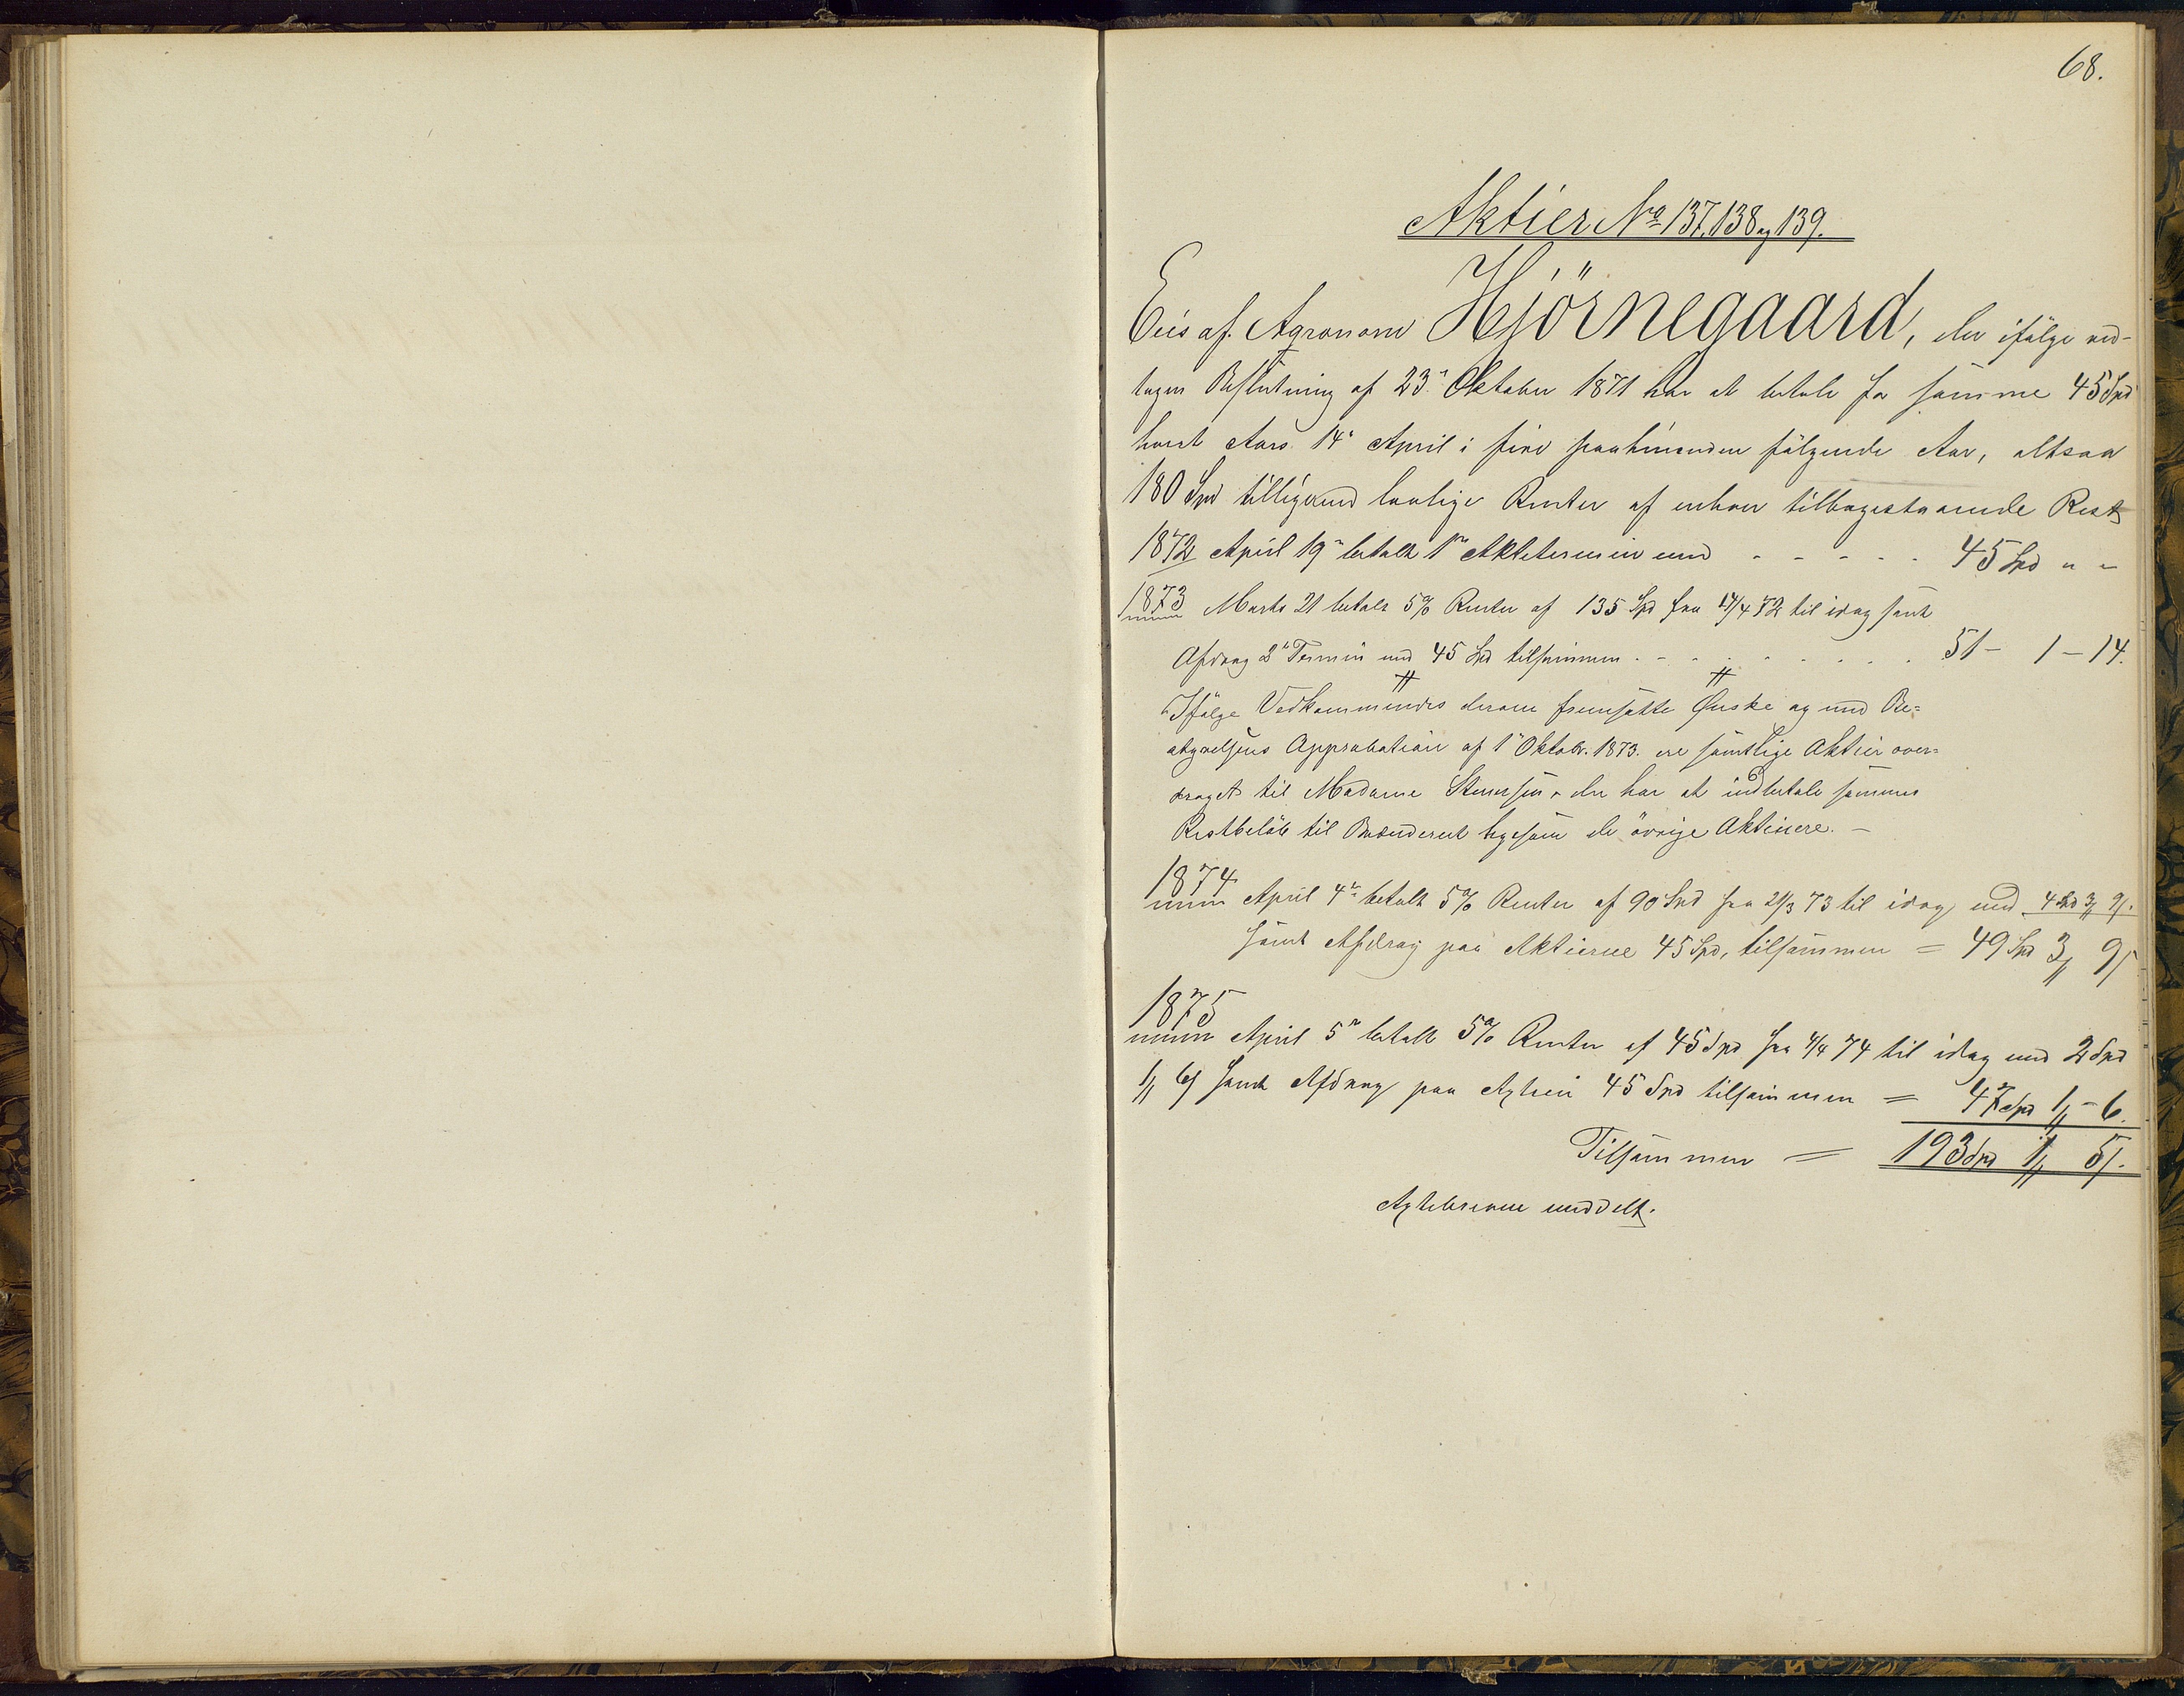 68.
Aktier No 137, 138 og 139.
Eies af Agronom Hjörnegaard, der ifölge ved-
tagen Beslutning af 23de Oktober 1871 har at betale for samme 45 Spd
hvert Aars 14de April i fire paahinanden fölgende Aar, altsaa
180 Spd tilligemed lovlige Renter af enhver tilbagestaaende Rest
1872 April 19de betalt 1ste Aktietermin med - - - - - 45 Spd " "
1873 Marts 21 betalt 5% Renter af 135 Spd fra 14/4 72 til idag samt
Afdrag 2den Termin med 45 Spd tilsammen - - - - - - - 51 - 1 - 14.
Ifölge Vedkommendes derom fremsatte Önske og med Be-
styrelsens Approbation af 1ste Oktobr. 1873. ere samtlige Aktier over-
draget til Madame Stenersen, der har at indbetale sammes
Restbelöb til Brænderiet ligesom de övrige Aktiener. -
1874
April 4de betalt 5% Renter af 90 Spd fra 21/3 73 til idag med 4 Spd 3 9.
samt Afdrag paa Aktierne 45 Spd, tilsammen = 49 Spd 3 9
1875
April 5te betalt 5% Renter af 45 Spd fra 4/4 74 til idag med 2 Spd
1 6 samt Afdrag paa Aktien 45 Spd tilsammen = 47 Spd 1 - 6.
Tilsammen = 193 Spd 1 5.
Aktiebrevene meddelt.